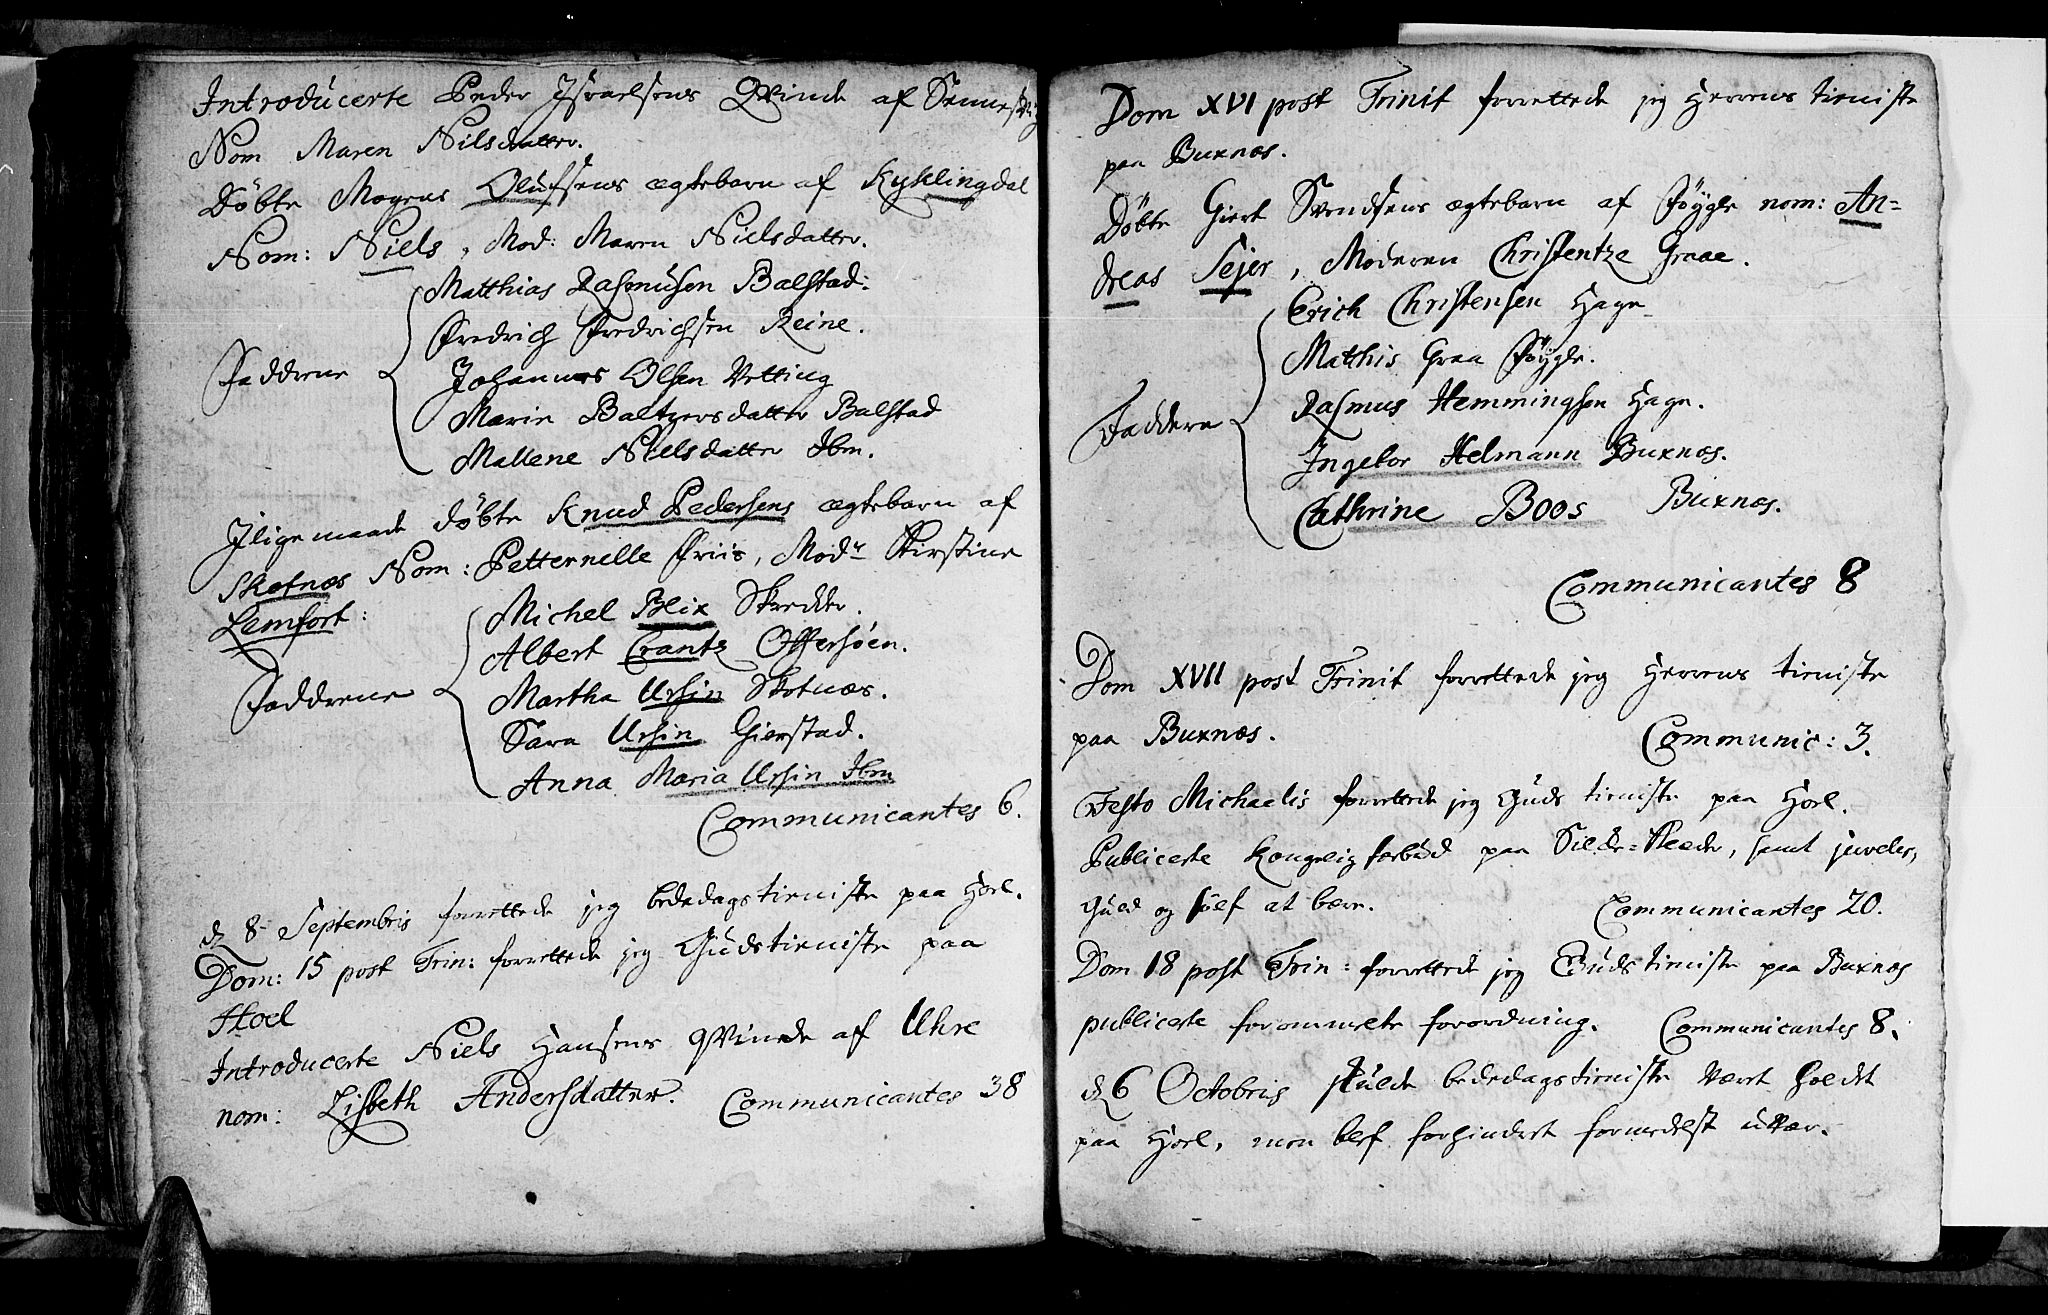 Introducerte Peder Israelsens Qvinde af Sennesvig
Nom Maren Nilsdatter.
Døbte Mogens Olufsens ægtebarn af Kyklingdal
Nom: Niels, Mod: Maren Nielsdatter.
Matthias Rasmusen Balstad:
Fredrich Fredrichsen Reine.
Faddrene
Johannes Olsen Vetting
Marin Baltzersdatter Balstad
Mallene Nielsdatter Ibm.
Iligemaade døbte Knud Pedersens ægtebarn af
Skotnæs Nom: Petternille Friis, Modr Kirstine
Lemfort:
Michel Blix Skredder.
Albert Crantz Offersøen.
Faddrene
Martha Ursin Skotnæs.
Sara Ursin Gierstad.
Anna Maria Ursin Ibm
Communicantes 6.
d 8 Septembris forrettede jeg bededagstieniste paa Hoel.
Dom: 15 post Trin: forrettede jeg Gudstieniste paa
Hoel
Introducerte Niels Hansens qvinde af Uhre
nom: Lisbeth Andersdatter. Communicantes 38
Dom XVI post Trinit forrettede jeg Herrens tieniste
paa Buxnæs.
Døbte Giert Svendsens ægtebarn af Føygle nom: An=
dreas Sejer, Moderen Christentze Graae.
Erich Christensen Hagn
Matthis Graa Føygle.
Faddere
Rasmus Hemmingsen Hagn.
Ingebor Helmann Buxnæs.
Cathrine Boos Buxnæs.
Communicantes 8
Dom XVII post Trinit forrettede jeg Herrens tieniste
paa Buxnæs. Communic: 3.
Festo Michaelis forrettede jeg Guds tieniste paa Hoel.
Publicerte Kongelig forbud paa Silde=Klæder, samt juveler,
Guld og sølf at bære. Communicantes 20.
Dom 18 post Trin: forrettede jeg Guds tieniste paa Buxnæs
publicerte forommelte forordning. Communicantes 8.
d 6 Octobris skulde bededagstieniste vært holdt
paa Hoel, men blef forhindret formedelst uvær.